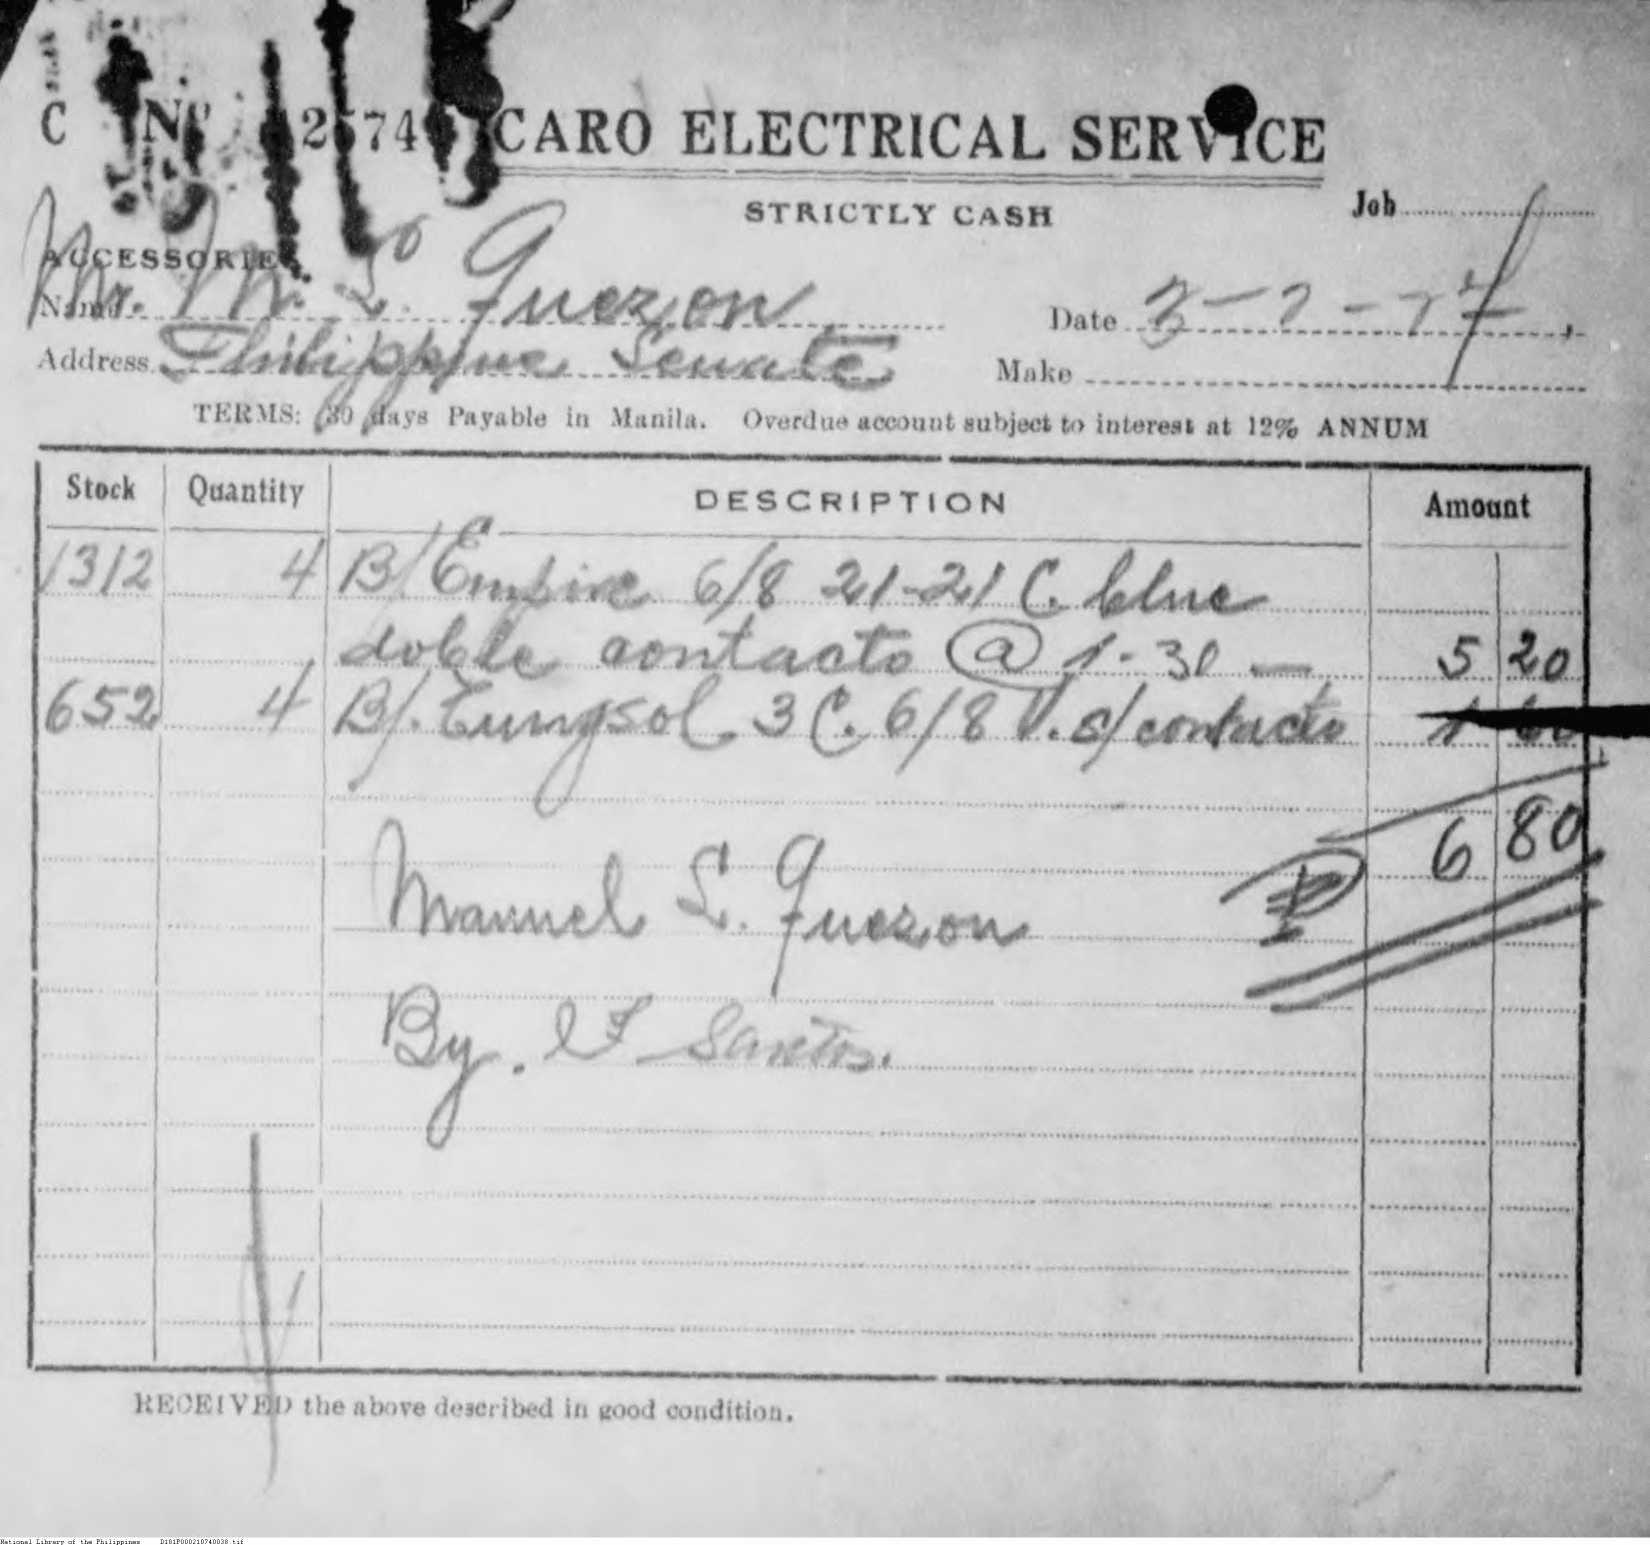 C Nº 2574 CARO ELECTRICAL SERVICE
STRICTLY CASH
Job
ACCESSORIES
Name Mr. M. L. Quezon
Date 3-7-
Address Philippine Senate
Make
TERMS: 30 days Payable in Manila. Overdue account subject to interest at 12% ANNUM
Stock Quantity DESCRIPTION Amount
1312 4 B/ Empire 6/8 21-21 C. blue
doble contacto @ 1-30 — 5 20
652 4 B/. Tungsol 3 C. 6/8 V. s/ contacto 1 60
₱ 6 80
Manuel L. Quezon
By. Santos.
RECEIVED the above described in good condition.
National Library of the Philippines D101P000210740038.tif